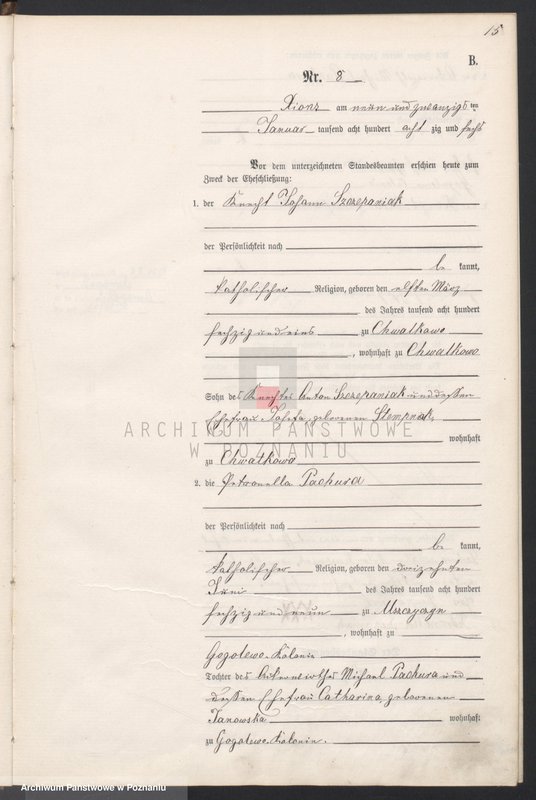 15
B.
Nr. 8
Xions am neun und zwanzigs ten
Januar tausend acht hundert acht zig und sechs
Vor dem unterzeichneten Standesbeamten erschien heute zum
Zweck der Eheschließung:
1. der Knecht Johann Szczepaniak
der Persönlichkeit nach
be kannt,
katholischer Religion, geboren den elften März
des Jahres tausend acht hundert
sechzig und eins zu Chwalkowo
, wohnhaft zu Chwalkowo
Sohn des Knechtes Anton Szczepaniak und dessen
Ehefrau Josefa, geborenen Stempnak,
wohnhaft
ARCHIWUM PAŃSTWOWE
W POZNANIU
zu Chwalkowo
2. die Petronella Pachura
der Persönlichkeit nach
be kannt,
katholischer Religion, geboren den dreizehnten
Juni des Jahres tausend acht hundert
sechzig und neun zu
, wohnhaft zu
Gogolewo-Kolonie
Tochter des Michael Pachura und
dessen Ehefrau Catharina, geborenen
Janowska wohnhaft
zu Gogolewo-Kolonie.
Archiwum Państwowe w Poznaniu